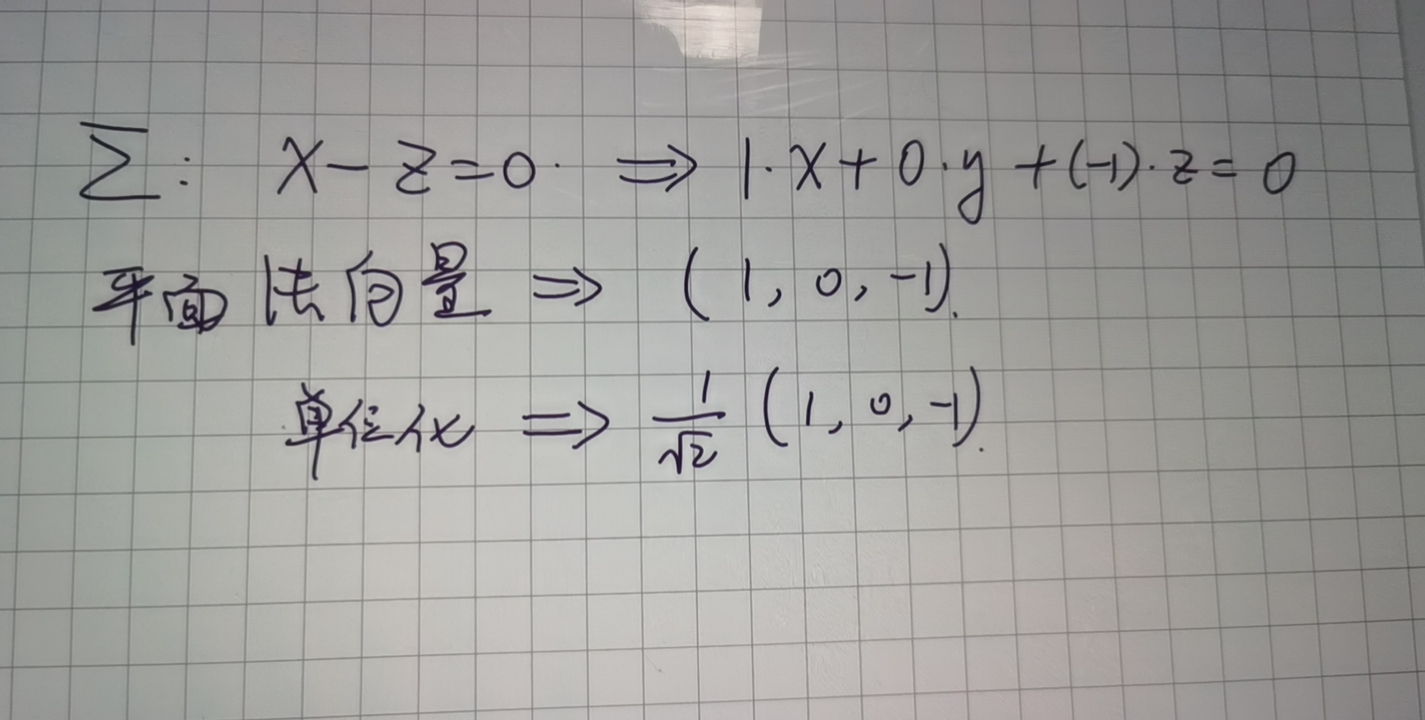 Σ: x - z = 0. ⇒ 1·x + 0·y + (-1)·z = 0
平面法向量 ⇒ (1, 0, -1).
单位化 ⇒ 1/√2 (1, 0, -1).